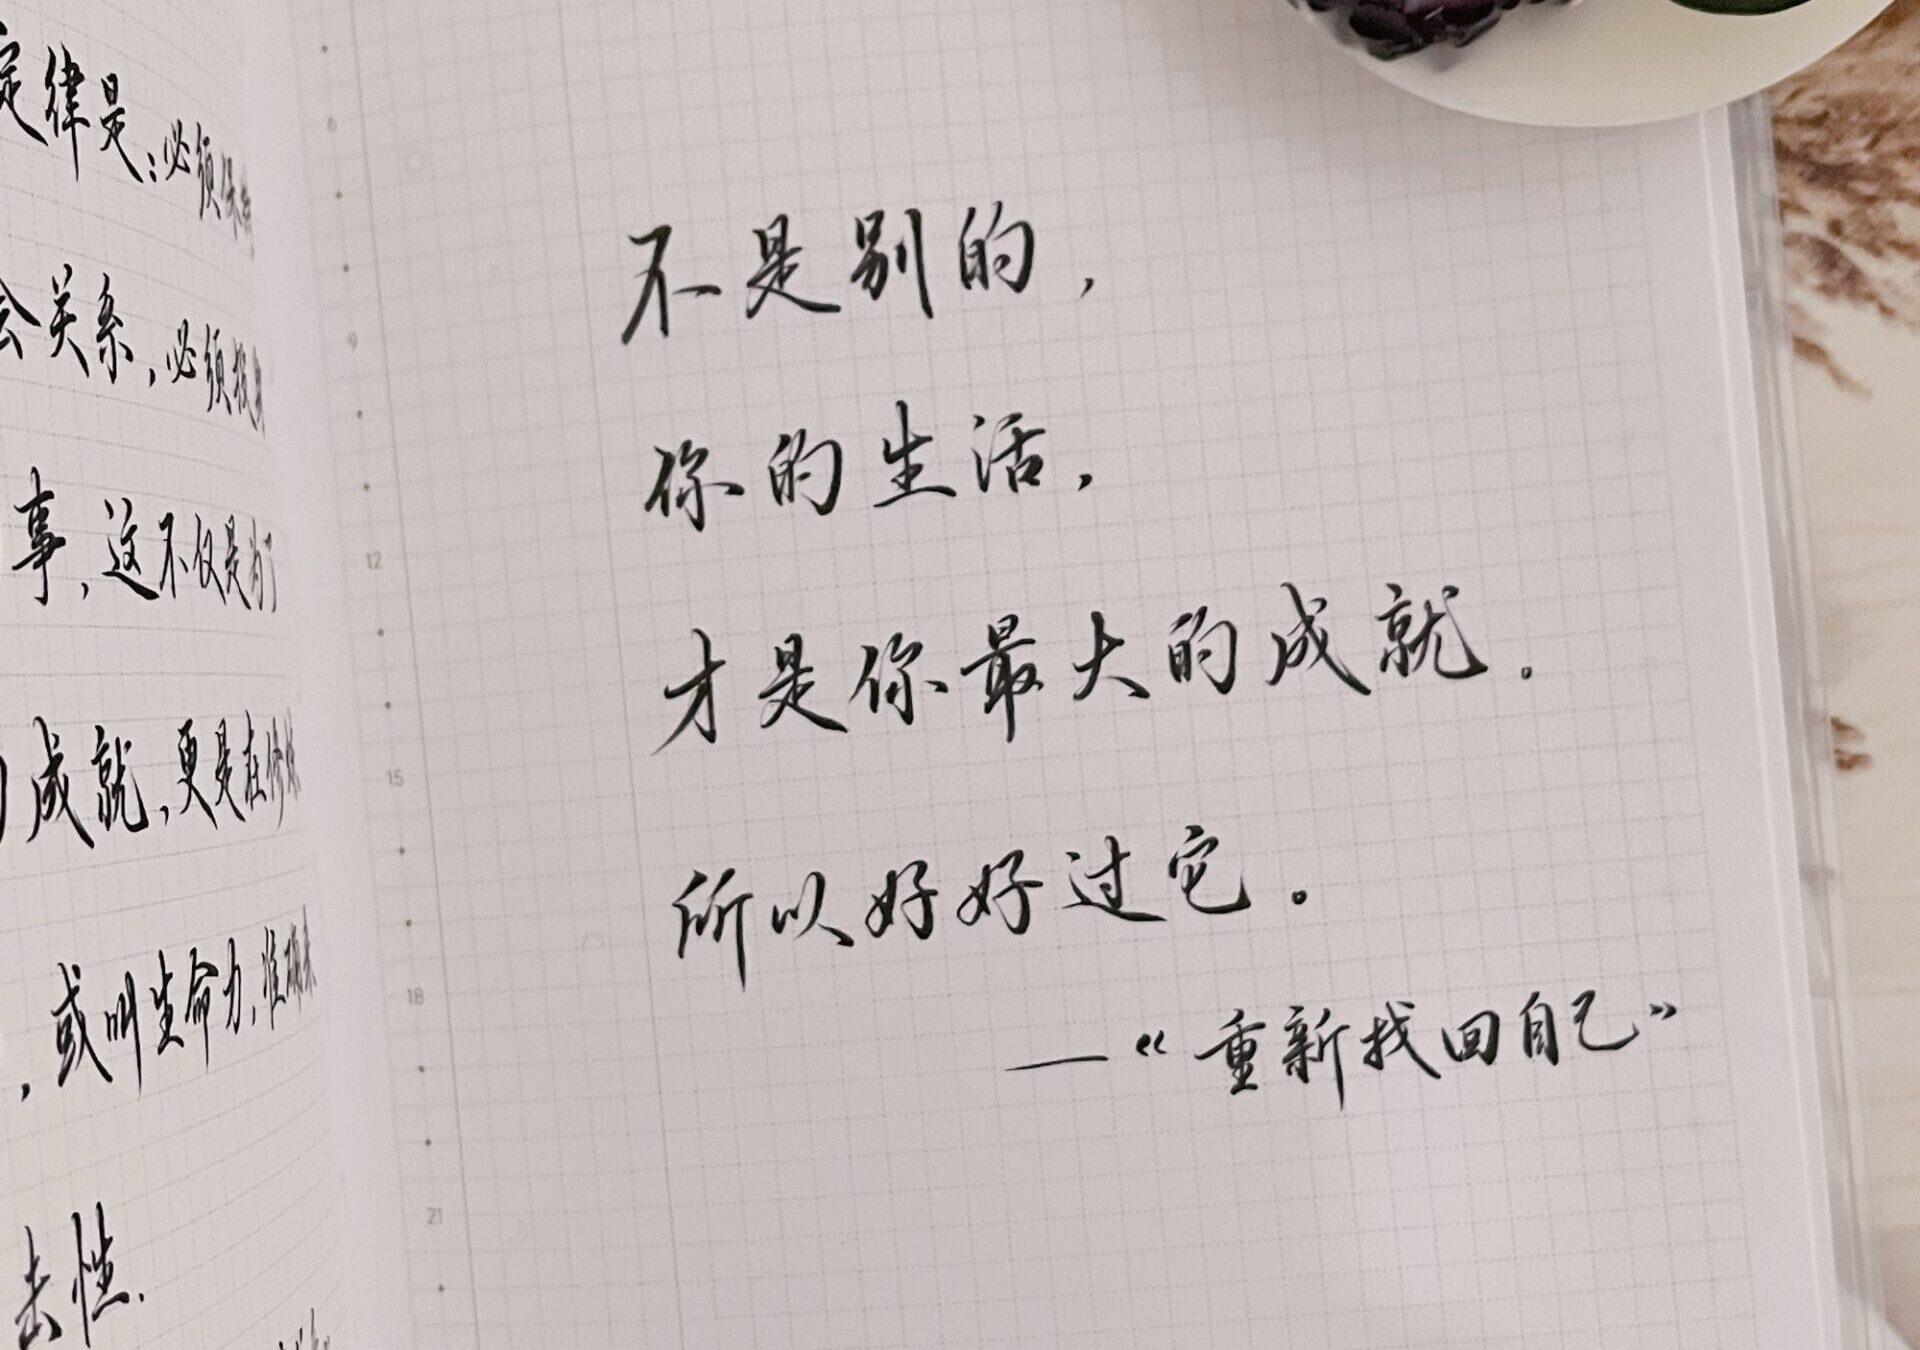 定律是:必须保
会关系,必须投
事,这不仅是为了
成就,更是在修炼
,或叫生命力,准确来
去性.
不是别的,
你的生活,
才是你最大的成就.
所以好好过它。
—“重新找回自己”
6
9
12
15
18
21